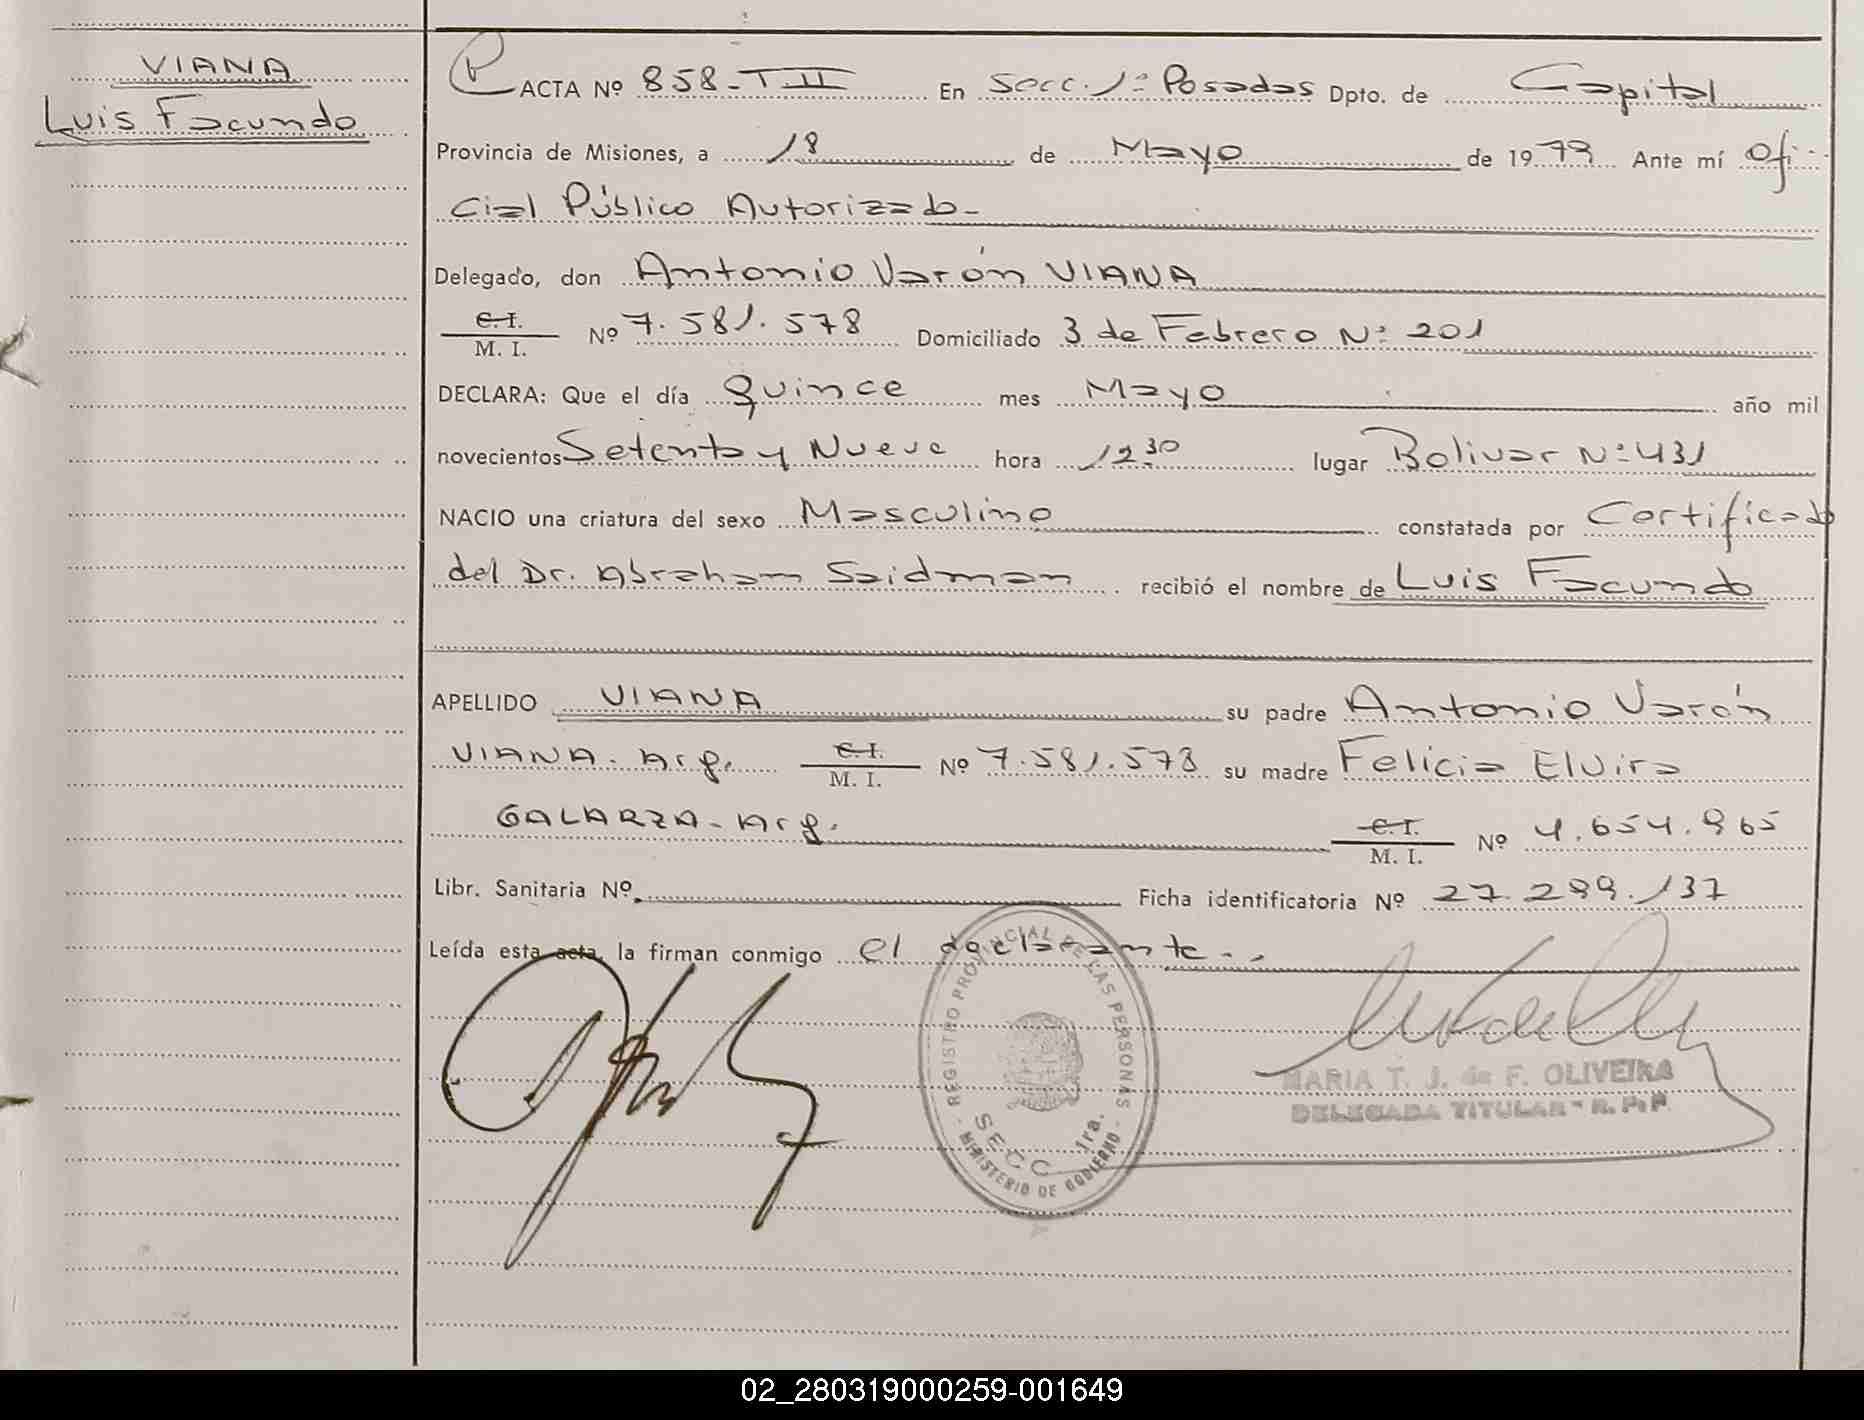 VIANA
Luis Facundo
ACTA Nº 858-T II En Secc. 1ª Posadas Dpto. de Capital
Provincia de Misiones, a 18 de Mayo de 1979 Ante mí Ofi-
cial Público Autorizado-
Delegado, don Antonio Varón VIANA
C. I.
M. I. Nº 7.581.578 Domiciliado 3 de Febrero Nº 201
DECLARA: Que el día quince mes Mayo año mil
novecientos Setenta y Nueve hora 12,30 lugar Bolivar Nº 431
NACIO una criatura del sexo Masculino constatada por Certificado
del Dr. Abraham Saidman recibió el nombre de Luis Facundo
APELLIDO VIANA su padre Antonio Varón
VIANA. Arg. C. I. M. I. Nº 7.581.578 su madre Felicia Elvira
GALARZA-Arg. C. I. M. I. Nº 4.654.965
Libr. Sanitaria Nº Ficha identificatoria Nº 27.299.137
Leída esta acta, la firman conmigo el declarante-
REGISTRO PROVINCIAL DE LAS PERSONAS
SECC 1ra.
MINISTERIO DE GOBIERNO
MARIA T. J. de F. OLIVEIRA
DELEGADA TITULAR - R. P. P.
02_280319000259-001649